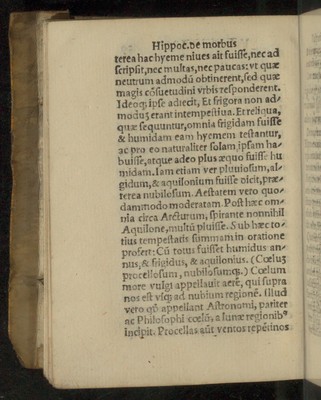 Hippoc. de morbus
terea hac hyeme niues ait fuisse, nec ad
scripsit, nec multas, nec paucas: vt quæ
neutrum admodū obtinerent, sed quæ
magis cōsuetudini vrbis responderent.
Ideoq; ipse adiecit, Et frigora non ad-
moduʒ erant intempestiua. Et reliqua,
quæ sequuntur, omnia frigidam fuisse
& humidam eam hyemem testantur,
ac pro eo naturaliter solam ipsam ha-
buisse, atque adeo plus æquo fuisse hu
midam. Iam etiam ver pluuiosum, al-
gidum, & aquilonium fuisse dicit, præ-
terea nubilosum. Aestatem vero quo-
dammodo moderatam. Post hæc om-
nia circa Arcturum, spirante nonnihil
Aquilone, multū pluisse. Sub hæc to-
tius tempestatis summam in oratione
profert: Cū totus fuisset humidus an-
nus, & frigidus, & aquilonius. (Cœluʒ
procellosum, nubilosumq;.) Cœlum
more vulgi appellauit aerē, qui supra
nos est vsq; ad nubium regionē. Illud
vero qđ appellant Astronomi, pariter
ac Philosophi cœlū, a lunæ regionibꝰ
incipit. Procellas aūt ventos repētinos